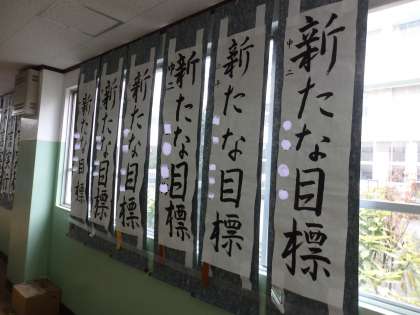 新たな目標
中二
新たな目標
中二
新たな目標
中二
新たな目標
新たな目標
新たな目標